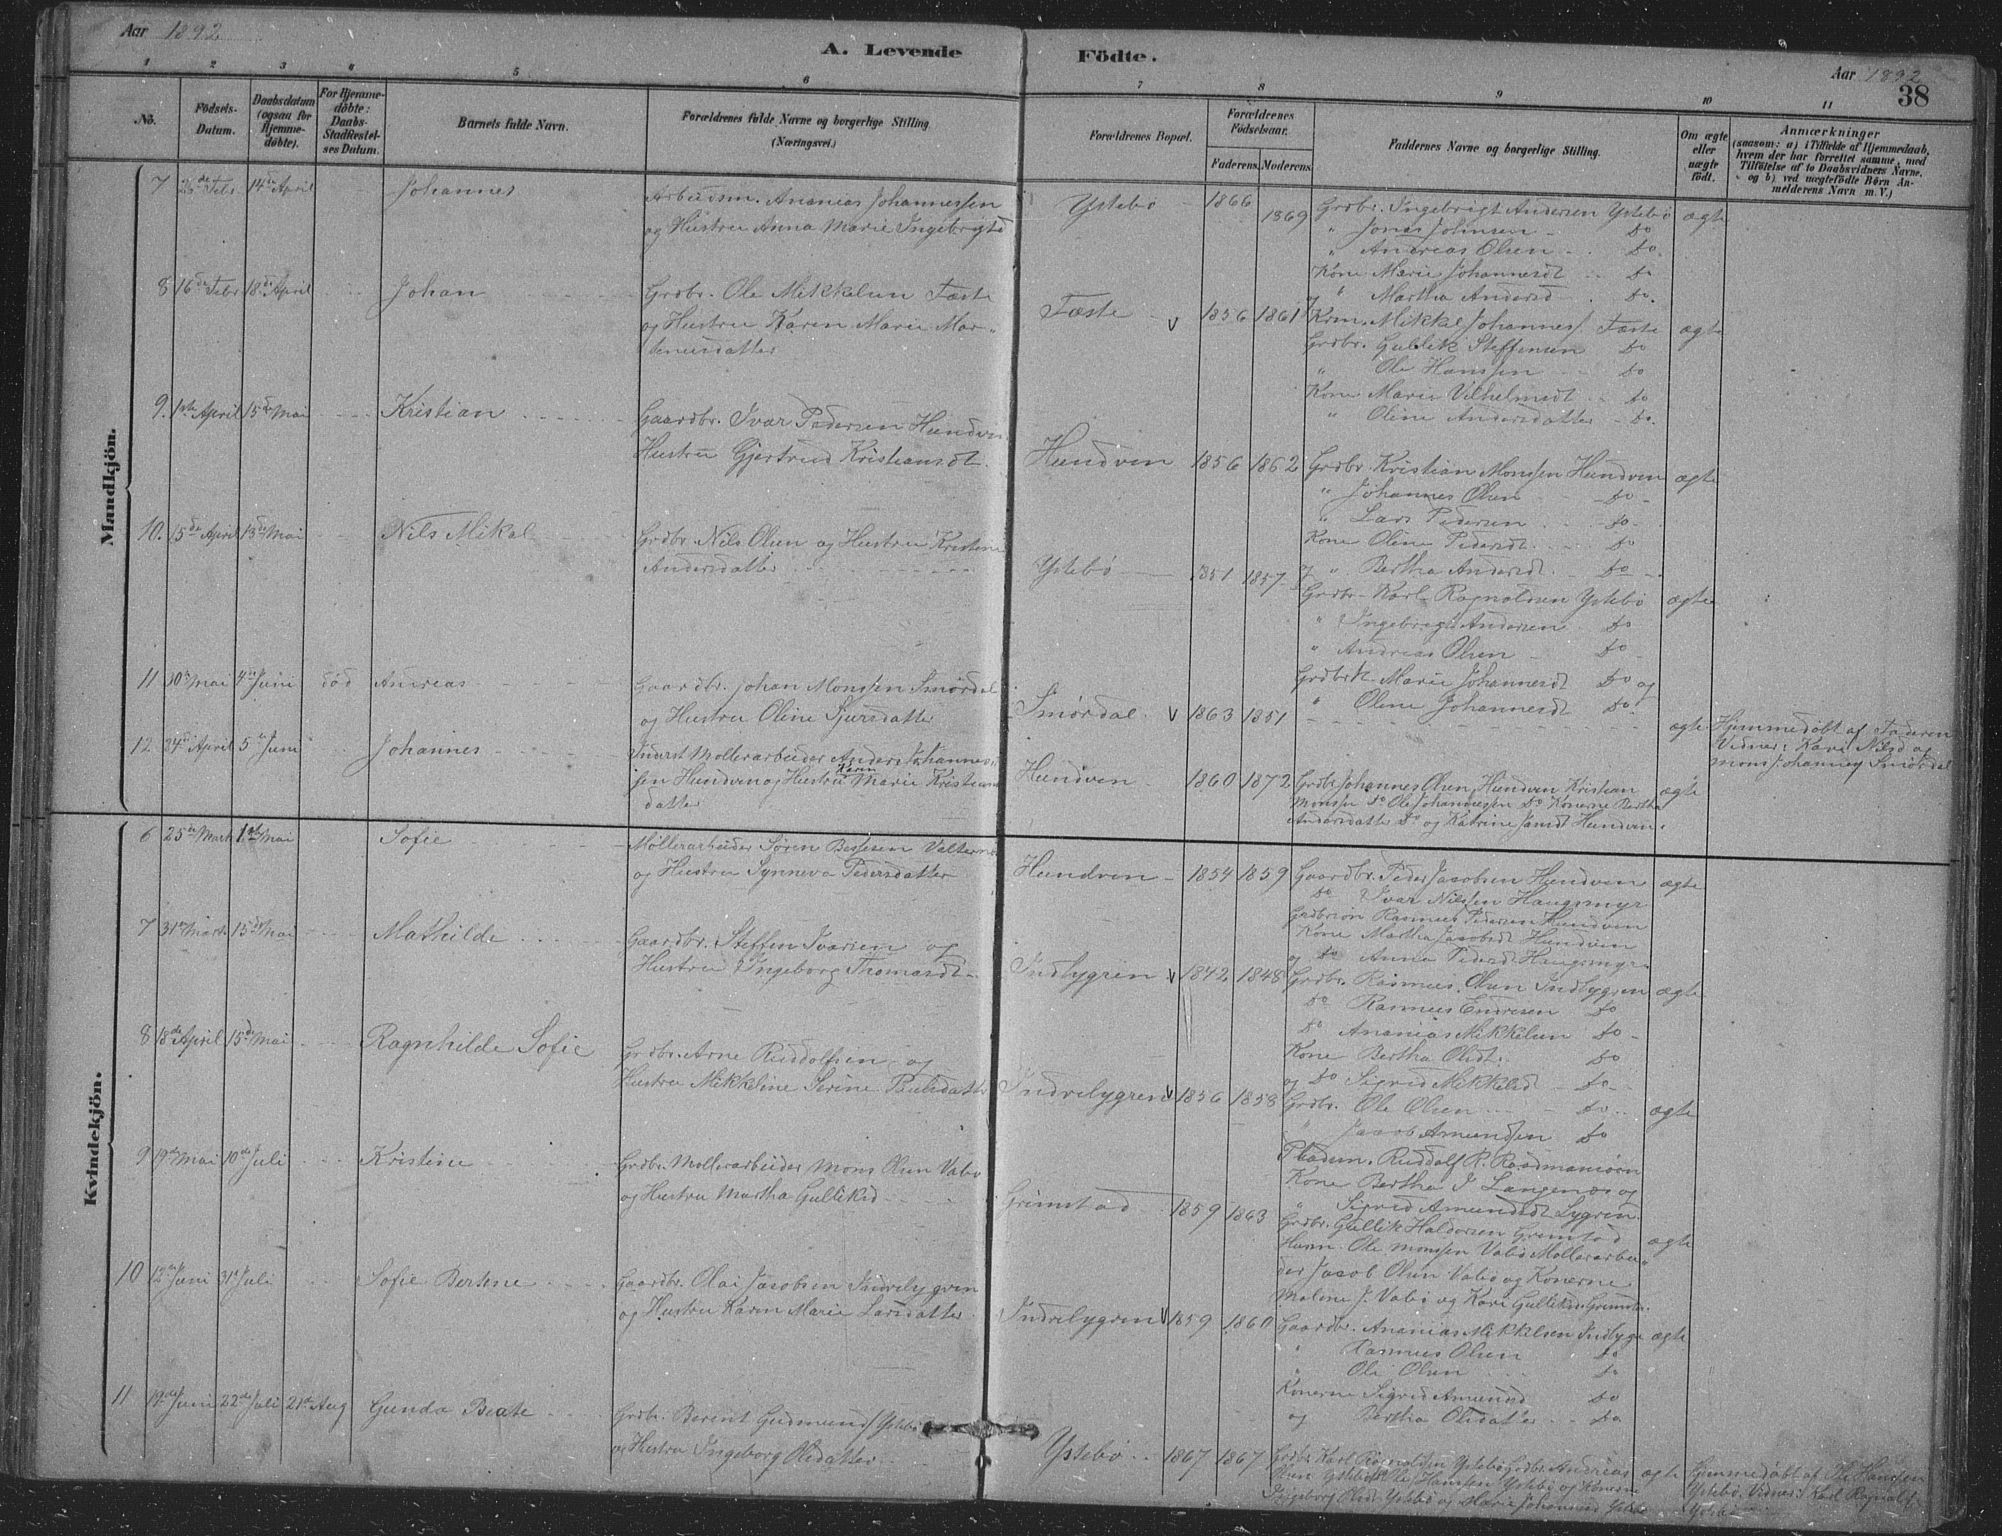 Aar 1892
A. Levende
Födte.
Aar 1892
38
1 2 3 4 5 6 7 8 9 10 11
No.
Födsels-
Datum.
Daabsdatum
(ogsaa for
Hjemme-
døbte).
For Hjemme-
døbte:
Daabs-
StadRestel-
ses Datum.
Barnets fulde Navn.
Forældrenes fulde Navne og borgerlige Stilling
(Næringsvei.)
Forældrenes Bopæl.
Forældrenes
Födselsaar.
Faderens. Moderens.
Faddernes Navne og borgerlige Stilling.
Om ægte
eller
uægte
født.
Anmærkninger
(saasom: a) i Tilfælde af Hjemmedaab,
hvem der har forrettet samme, med
Tilføielse af to Daabsvidners Navne,
og b) ved uægtefødte Börn An-
melderens Navn m. V.)
Mandkjön.
7 14de April Johannes
Arbeidsm. Ananias Johannessen
og Hustru Anna Marie Ingebrigtsd
Ystebø 1866 1869
Grdbr. Ingebrigt Andersen Ystebø ægte
" Jonas Johnsen do
" Andreas Olsen do
Kone Marie Johannesdt do
og " Martha Andersd do.
8 16de Febr 18de April Johan
Grdbr. Ole Mikkelsen Fæste
og Hustru Karen Marie Mar-
tenusdatter
Fæste v 1856 1861
Krm. Mikkel Johanness. Fæste ægte
Grdbr. Gullik Steffensen do
" Ole Hanssen do
Kone Marie Vilhelmsdt do
" Oline Andersdatter do.
9. 1ste April 15de Mai Kristian
Gaardbr. Ivar Pedersen Hundven
Hustru Gjertrud Kristiansdt.
Hundven 1856 1862
Grdbr. Kristian Monssen Hundven ægte
" Johannes Olsen do
" Lars Pedersen do
Kone Oline Pedersdt do
og " Bertha Andersdt. do
10. 15de April 13de Mai Nils Mikal
Grdbr. Nils Olsen og Hustru Kristine
Andersdatter
Ystebø 1851 1857
Grdbr. Karl Ragnaldsen Ystebø ægte
" Ingebrigt Andersen do
" Andreas Olsen do
Grdbrk. Marie Johannesdt do og
" Oline Johannesdt do
11 30te Mai 4de Juni død Andreas
Gaardbr. Johan Monssen Smørdal
og Hustru Oline Sjursdatter
Smørdal v 1863 1851 ægte
Hjemmedøbt af Faderen
Vidner: Kari Nilsd og
Mons Johannes Smørdal
12. 24de April 5te Juni Johannes
Inderst Møllerarbeider Anders Johannes-
sen Hundven og Hustru Karen Marie Kristians
datter
Hundven 1860 1872
Grdbr Johannes Olsen Hundven Kristian ægte
Monssen do Ole Johannessen do Konerne Bertha
Andersdatter do og Katrine Jansdt Hundven.
Kvindekjön.
6 25de Marts 1ste Mai Sofie
Møllerarbeider Søren Bertesen Valternes
og Hustru Synneva Pedersdatter
Hundven 1854 1859
Gaardbr. Peder Jacobsen Hundven ægte
do Ivar Nilssen Haugsmyr
Grdbrsøn Rasmus Pedersen Hundven
Kone Martha Jacobsdt Hundven
og do Anna Pedersdt Haugsmyr
7 31te Marts 15de Mai Mathilde
Gaardbr. Steffen Ivarsen og
Hustru Ingeborg Thomasdt.
Indlygren v 1842 1848
Grdbr. Rasmus Olsen Indlygren ægte
do Rasmus Endresen do
do Ananias Mikkelsen do
Kone Bertha Olsdt. do
og do Sigrid Mikkelsd do
8 18de April 15de Mai Ragnhilde Sofie
Grdbr. Arne Ruddolfsen og
Hustru Mikkeline Serine Pauladatter
Indrelygren v 1856 1858
Grdbr. Ole Olsen do ægte
" Jacob Amundsen do
Pladsm. Ruddolf R.
Kone Bertha J. Langenæs og
" Sigrid Amundsdt Lygren.
9 19de Mai 10de Juli Kristine
Grdbr. Møllerarbeider Mons Olsen Vabø
og Hustru Martha Gulliksd
Grimstad 1859 1863
Grdbr. Gullik Haldorsen Grimstad ægte
Husm. Ole Monssen Vabø Møllerarbei-
der Jacob Olsen Vabø og Konerne
Malene J. Vabø og Kari Gulliksd Grimstad
10 12te Juni 31te Juli Sofie Bertine
Gaardbr. Olai Jacobsen Indrelygren
og Hustru Karen Marie Larsdatter
Indrelygren v 1859 1860
Gaardbr. Ananias Mikkelsen Indlygr ægte
" Rasmus Olsen do
" Ole Olsen do
Konerne Sigrid Amundsd do
og Bertha Olsdatter do
11 19de Juni 22de Juli 21de Aug Gunda Beate
Grdbr. Berent Gudmunds. Ystebø
og Hustru Ingeborg Olsdatter
Ystebø 1867 1867
Grdbr. Karl Ragnaldsen Ystebø Grdbr. Andreas ægte
Olsen Ystebø Ole Hanssen Ystebø og Konerne
Ingeborg Olsdt Ystebø og Marie Johannesd Ystebø
Hjemmedøbt af Ole Hanssen
Ystebø. Vidner: Karl Ragnalds.
Ystebø